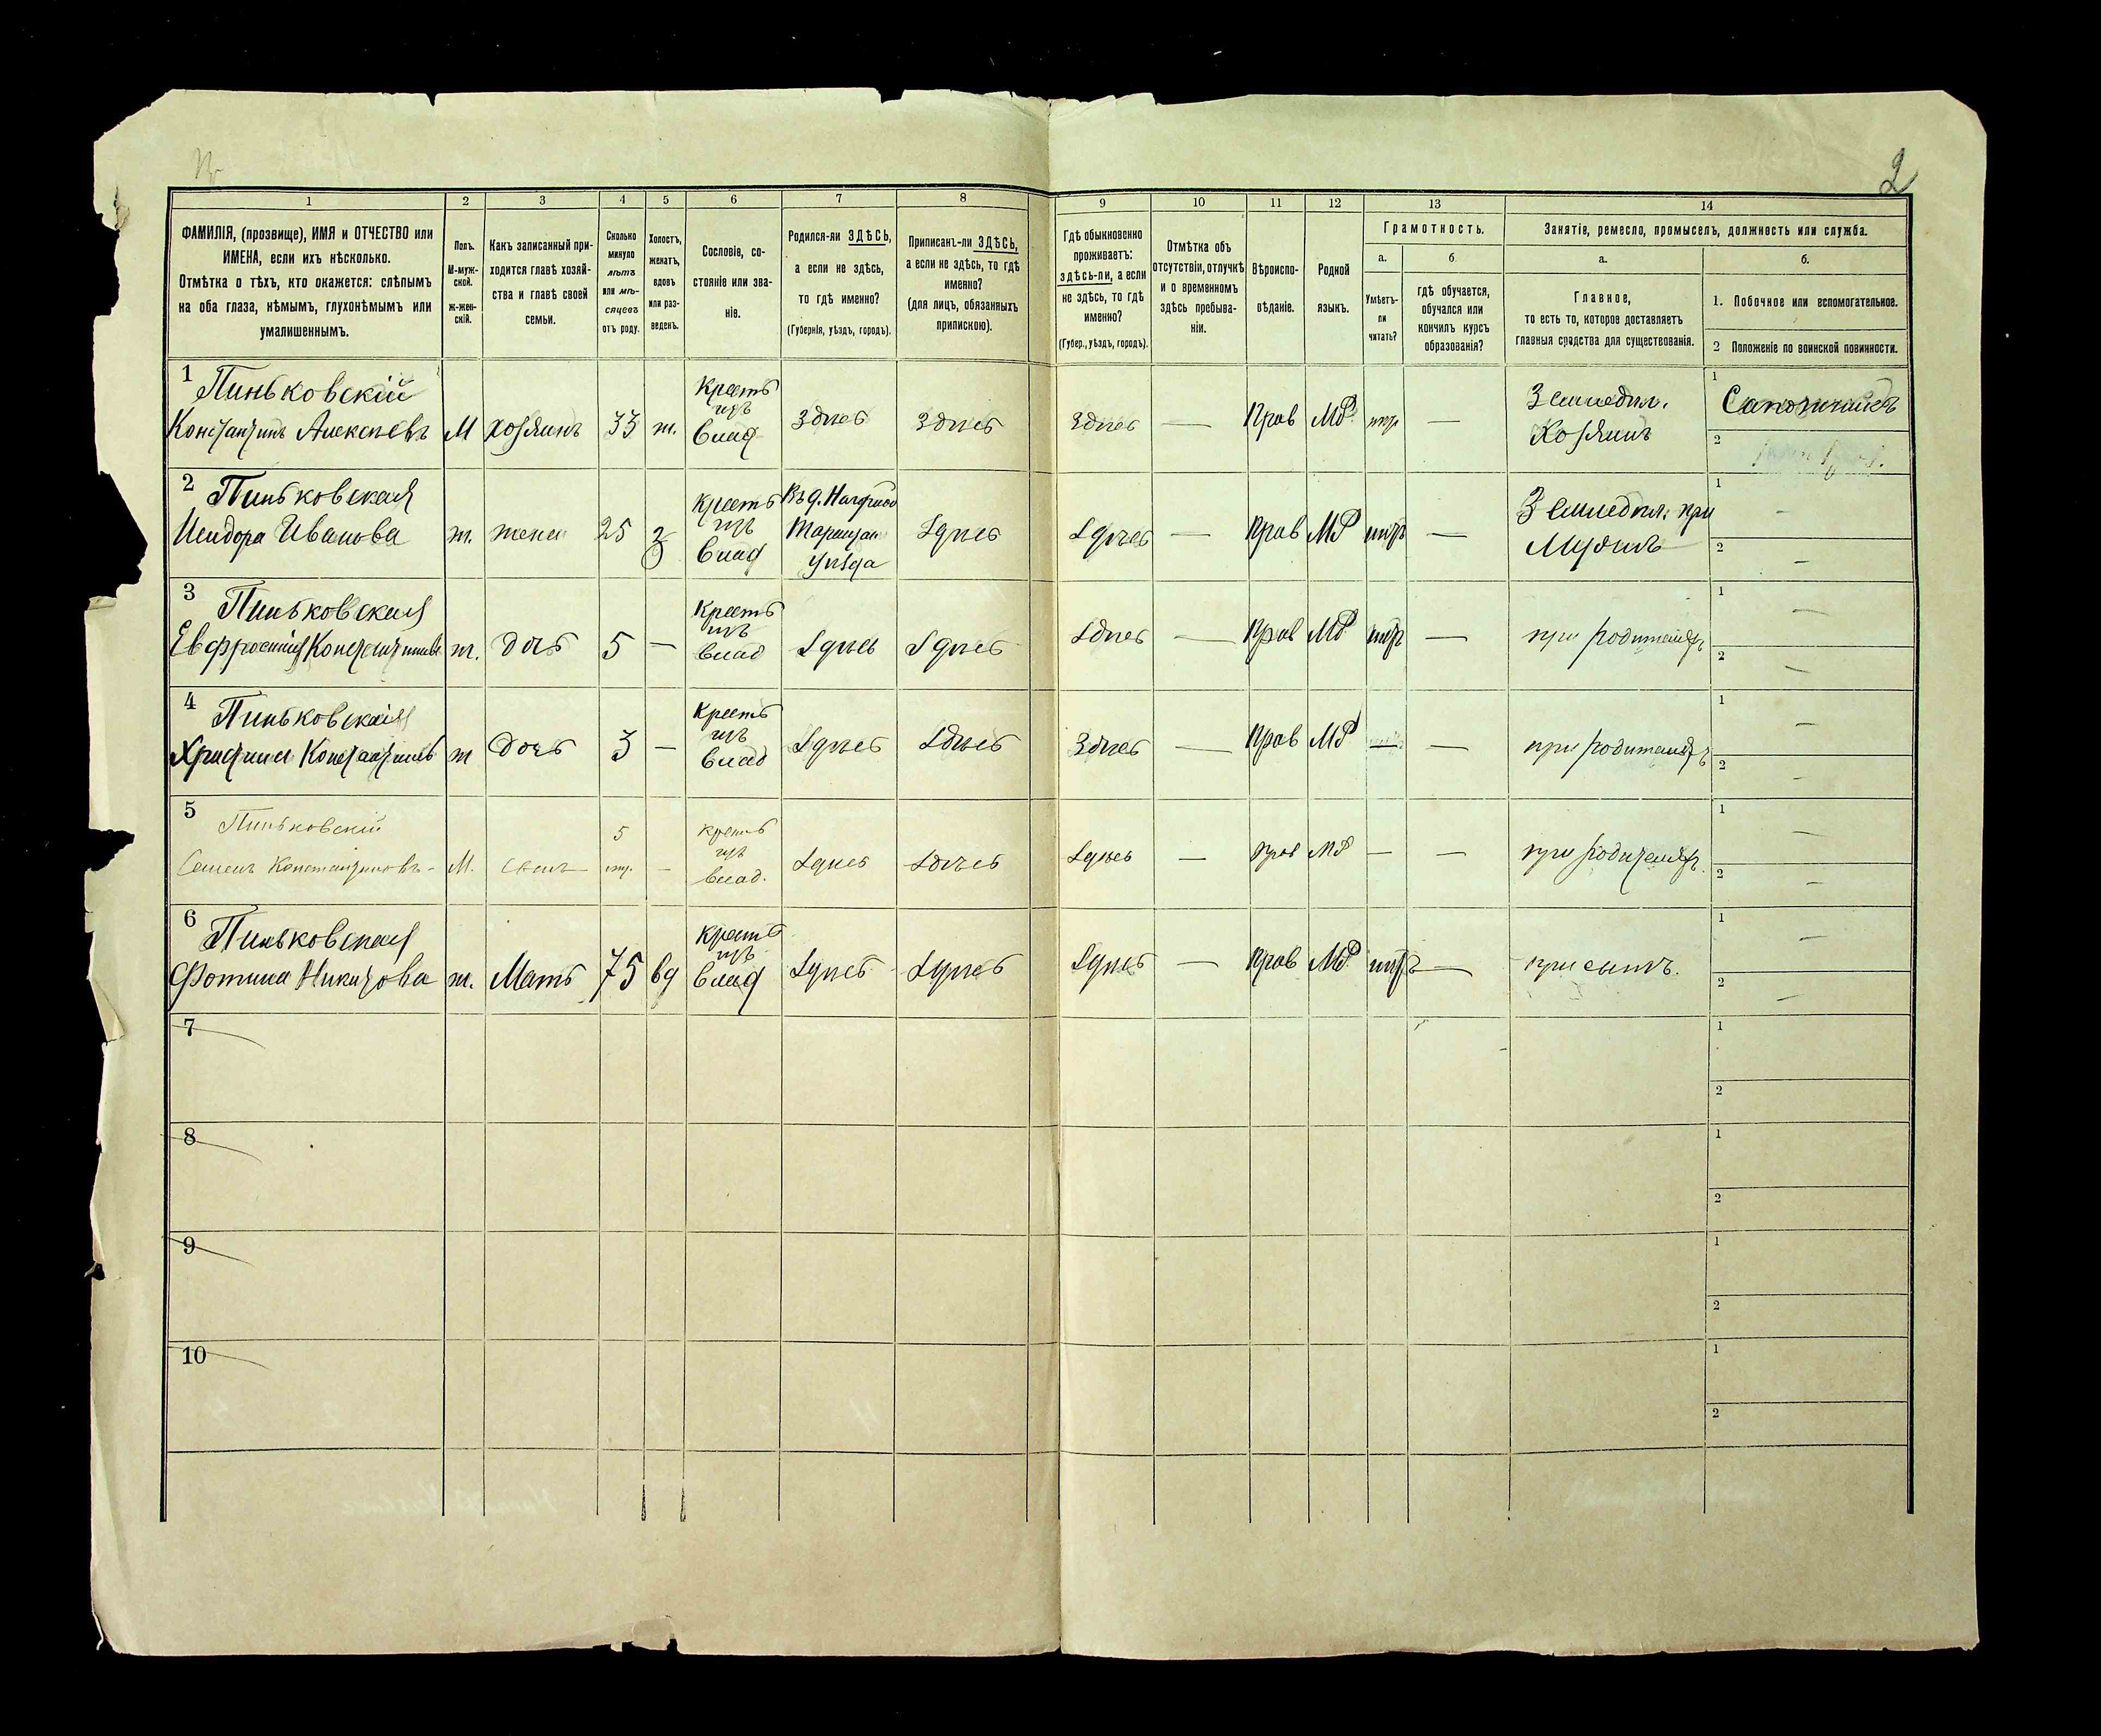 2
1
2
3
4
5
6
7
8
9
10
11
12
13
14
ФАМИЛІЯ, (прозвище), ИМЯ и ОТЧЕСТВО или
ИМЕНА, если ихъ нѣсколько.
Отмѣтка о тѣхъ, кто окажется: слѣпымъ
на оба глаза, нѣмымъ, глухонѣмымъ или
умалишеннымъ.
Полъ.
М-муж-
ской.
ж-жен-
скій.
Какъ записанный при-
ходится главѣ хозяй-
ства и главѣ своей
семьи.
Сколько
минуло
лѣтъ
или мѣ-
сяцевъ
отъ роду.
Холостъ,
женатъ,
вдовъ
или раз-
веденъ.
Сословіе, со-
стояніе или зва-
ніе.
Родился-ли ЗДѢСЬ,
а если не здѣсь,
то гдѣ именно?
(Губернія, уѣздъ, городъ).
Приписанъ-ли ЗДѢСЬ,
а если не здѣсь, то гдѣ
именно?
(для лицъ, обязанныхъ
припискою).
Гдѣ обыкновенно
проживаетъ:
здѣсь-ли, а если
не здѣсь, то гдѣ
именно?
(Губер., уѣздъ, городъ).
Отмѣтка объ
отсутствіи, отлучкѣ
и о временномъ
здѣсь пребыва-
ніи.
Вѣроиспо-
вѣданіе.
Родной
языкъ.
Грамотность.
а.
б.
Умѣетъ-
ли
читать?
гдѣ обучается,
обучался или
кончилъ курсъ
образованія?
Занятіе, ремесло, промыселъ, должность или служба.
а.
б.
Главное,
то есть то, которое доставляетъ
главныя средства для существованія.
1. Побочное или вспомогательное.
2 Положеніе по воинской повинности.
1
Пиньковскій
Константинъ Алексѣевъ
М
хозяинъ
33
ж.
крестъ
изъ
влад
Здѣсь
Здѣсь
Здѣсь
—
Прав
МР
Земледѣл.
Хозяинъ
1
Сапожникъ
2
2
Пиньковская
Исидора Иванова
ж.
жена
25
З
крестъ
изъ
влад
уѣзда
Здѣсь
Здѣсь
—
Прав
МР
—
Земледѣл. при
Мужѣ
1
—
2
—
3
Пиньковская
Евфросинія Константинова
ж.
дочь
5
—
крестъ
изъ
влад
Здѣсь
Здѣсь
Здѣсь
—
Прав
МР
—
при родителяхъ
1
—
2
—
4
Пиньковская
Христина Константинов
ж
дочь
3
—
крестъ
изъ
влад
Здѣсь
Здѣсь
Здѣсь
—
Прав
МР
—
—
при родителяхъ
1
—
2
—
5
Пиньковскій
Семенъ Константиновъ
М.
сынъ
5
—
крестъ
изъ
влад.
Здѣсь
Здѣсь
Здѣсь
—
Прав
МР
—
—
при родителяхъ.
1
—
2
—
6
Пиньковская
Фотина Никитова
ж.
Мать
75
вд
крестъ
изъ
влад
Здѣсь
Здѣсь
Здѣсь
—
Прав
МР
—
при сынѣ.
1
—
2
—
7
1
2
8
1
2
9
1
2
10
1
2